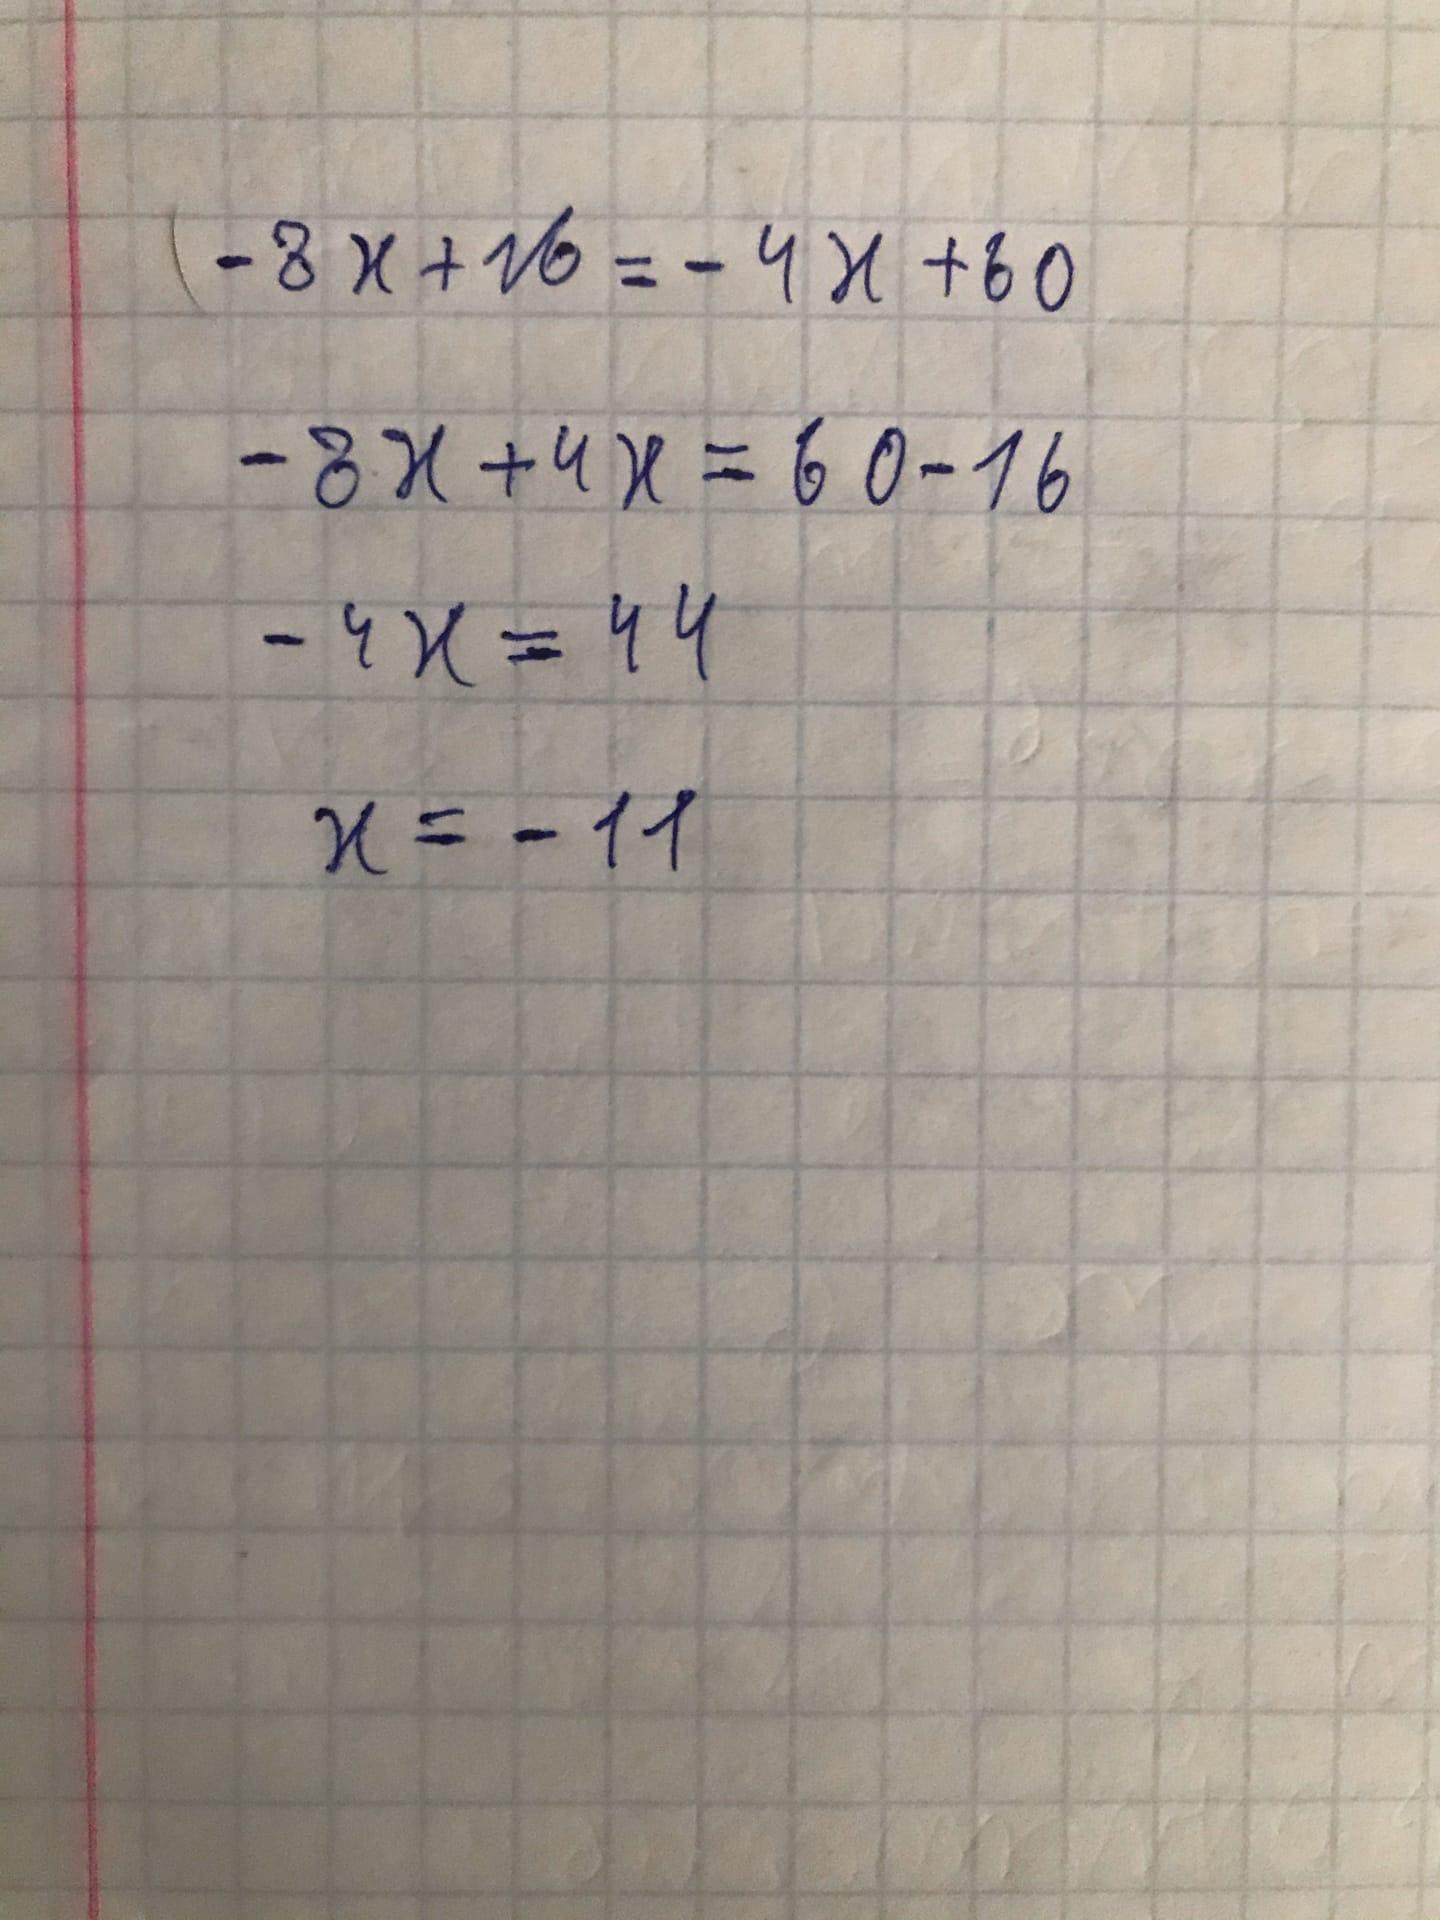 -8x+16=-4x+60
-8x+4x=60-16
-4x=44
x=-11